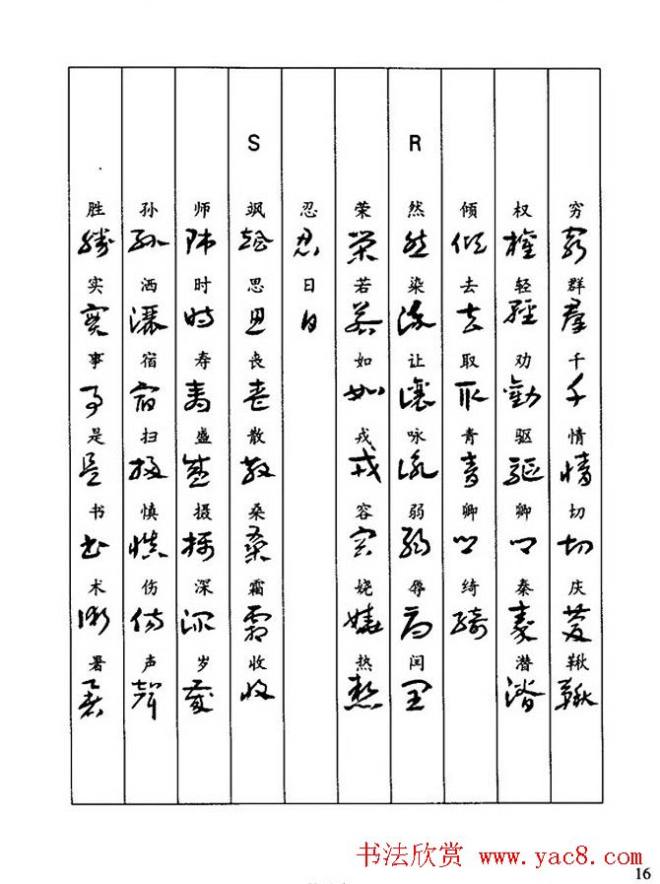 穷 群 千 情 切 庆 鞦
权 轻 劝 驱 卿 秦 潜
倾 去 取 青 卿 绮
R
然 染 让 咏 弱 辱 闰
荣 若 如 戎 容 娆 热
忍 日
S
飒 思 丧 散 桑 霜 收
师 时 寿 盛 摄 深 岁
孙 洒 宿 扫 慎 伤 声
胜 实 事 是 书 术 暑
书法欣赏 www.yac8.com
16